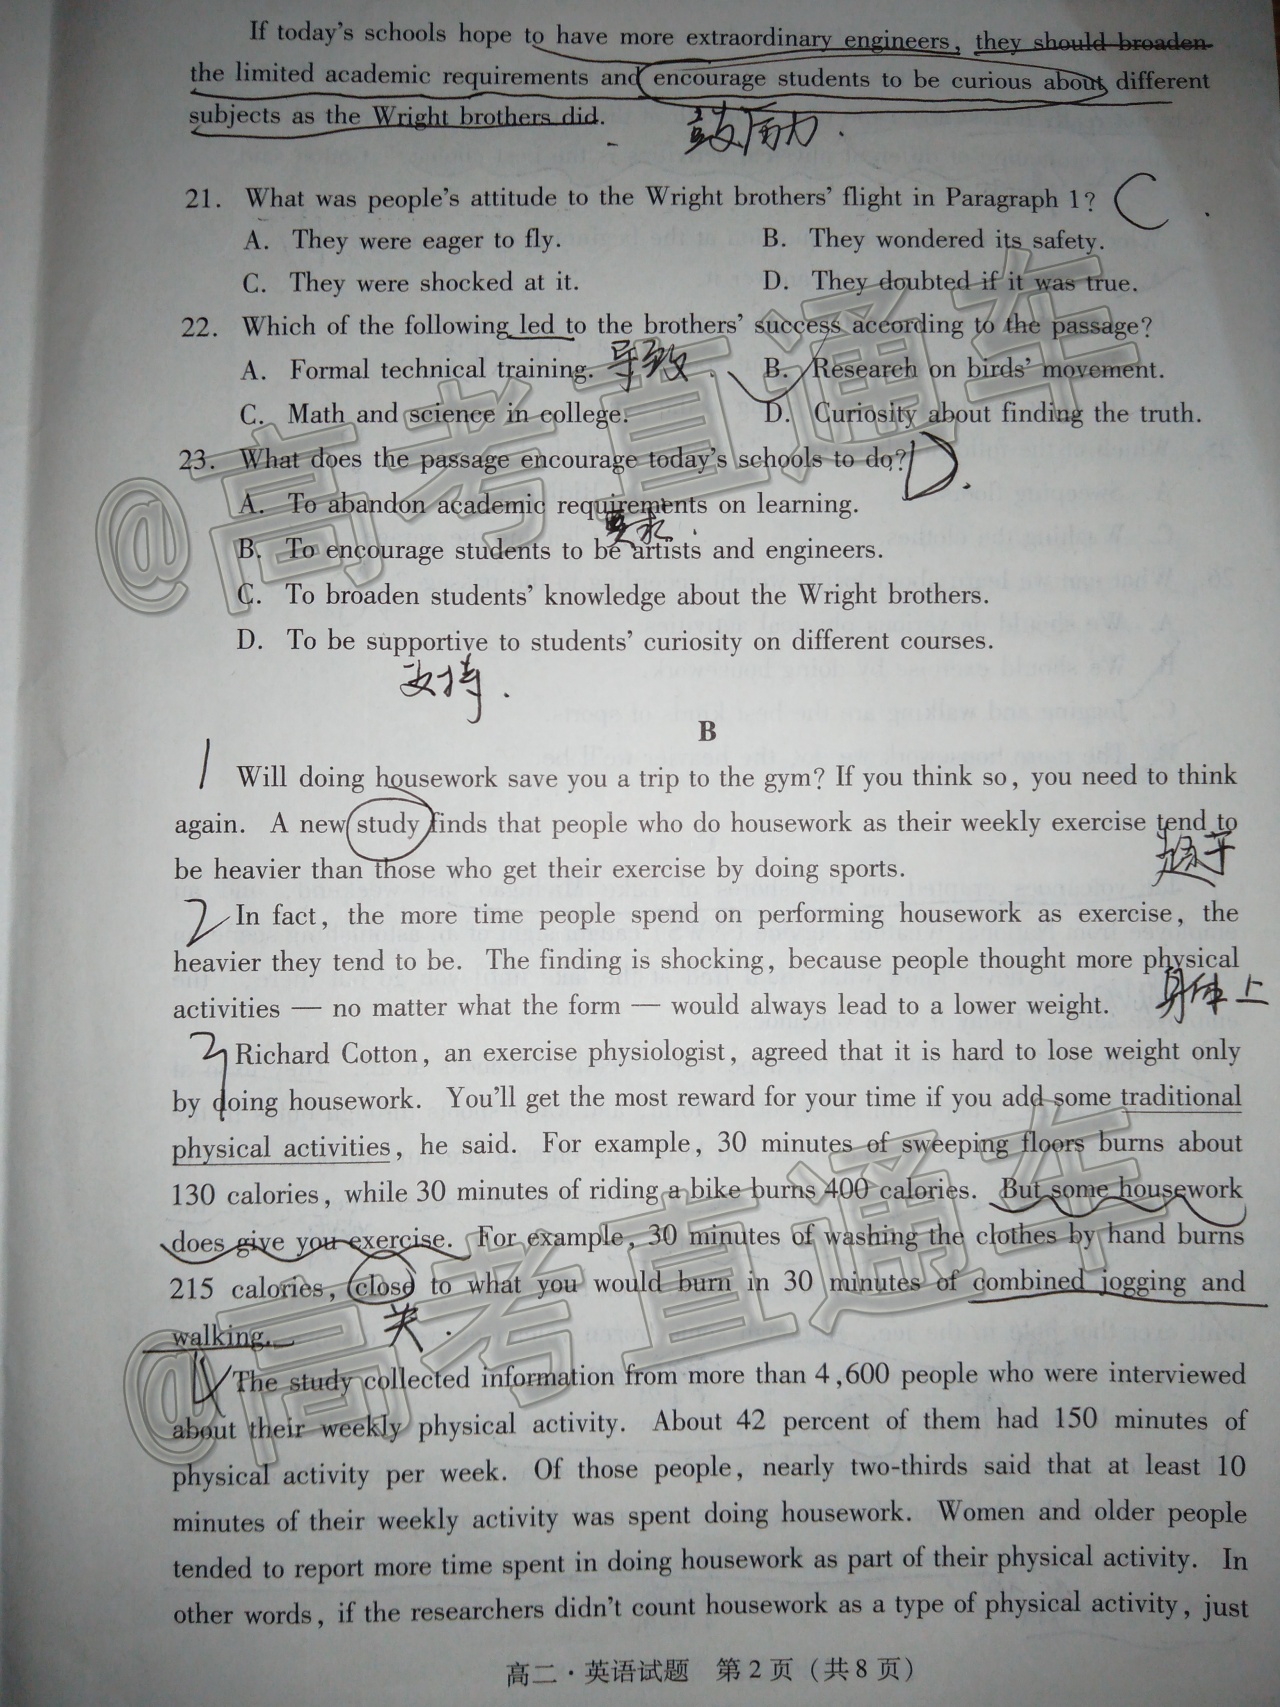 If today's schools hope to have more extraordinary engineers, they should broaden
the limited academic requirements and encourage students to be curious about different
subjects as the Wright brothers did.
鼓励
21. What was people's attitude to the Wright brothers' flight in Paragraph 1? C
A. They were eager to fly. B. They wondered its safety.
C. They were shocked at it. D. They doubted if it was true.
22. Which of the following led to the brothers' success according to the passage?
A. Formal technical training. 导致 B. Research on birds' movement.
C. Math and science in college. D. Curiosity about finding the truth.
23. What does the passage encourage today's schools to do? D.
A. To abandon academic requirements on learning.
要求
B. To encourage students to be artists and engineers.
C. To broaden students' knowledge about the Wright brothers.
D. To be supportive to students' curiosity on different courses.
支持
@高考直通车
B
1 Will doing housework save you a trip to the gym? If you think so, you need to think
again. A new study finds that people who do housework as their weekly exercise tend to
be heavier than those who get their exercise by doing sports.
2 In fact, the more time people spend on performing housework as exercise, the
heavier they tend to be. The finding is shocking, because people thought more physical
activities — no matter what the form — would always lead to a lower weight. 身体上
3 Richard Cotton, an exercise physiologist, agreed that it is hard to lose weight only
by doing housework. You'll get the most reward for your time if you add some traditional
physical activities, he said. For example, 30 minutes of sweeping floors burns about
130 calories, while 30 minutes of riding a bike burns 400 calories. But some housework
does give you exercise. For example, 30 minutes of washing the clothes by hand burns
215 calories, close to what you would burn in 30 minutes of combined jogging and
关
walking.
4 The study collected information from more than 4,600 people who were interviewed
about their weekly physical activity. About 42 percent of them had 150 minutes of
physical activity per week. Of those people, nearly two-thirds said that at least 10
minutes of their weekly activity was spent doing housework. Women and older people
tended to report more time spent in doing housework as part of their physical activity. In
other words, if the researchers didn't count housework as a type of physical activity, just
@高考直通车
高二·英语试题 第2页(共8页)